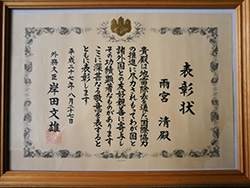 表彰状
雨宮 清殿
貴殿は地雷除去を通じ国際協力
の推進に尽力されもってわが国と
諸外国との友好親善に寄与し
その功績顕著なものがあります
ここに深甚なる敬意を表すると
ともに表彰します
平成二十七年八月二十七日
外務大臣 岸田文雄